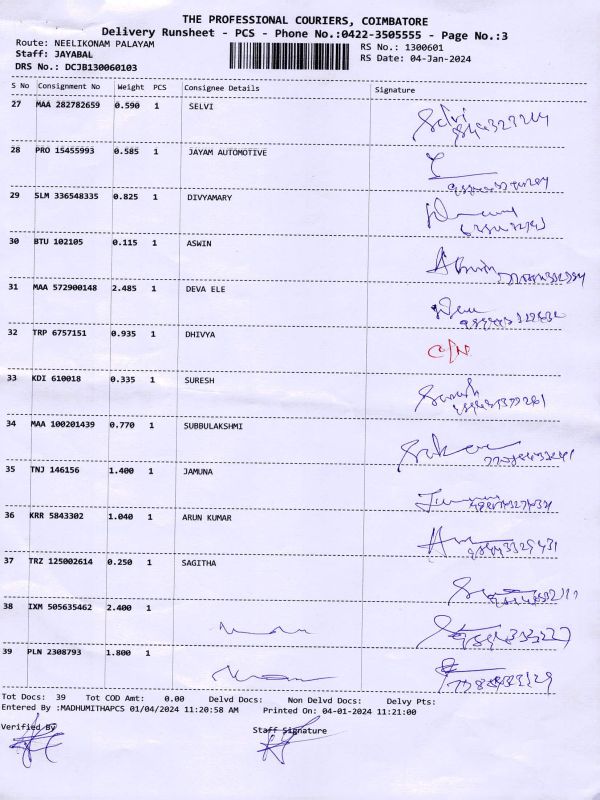 THE PROFESSIONAL COURIERS, COIMBATORE
Delivery Runsheet - PCS - Phone No.:0422-3505555 - Page No.:3
Route: NEELIKONAM PALAYAM RS No.: 1300601
Staff: JAYABAL RS Date: 04-Jan-2024
DRS No.: DCJB130060103
S No Consignment No Weight PCS Consignee Details Signature
27 MAA 282782659 0.590 1 SELVI Selvi
28 PRO 15455993 0.585 1 JAYAM AUTOMOTIVE
29 SLM 336548335 0.825 1 DIVYAMARY
30 BTU 102105 0.115 1 ASWIN
31 MAA 572900148 2.485 1 DEVA ELE
32 TRP 6757151 0.935 1 DHIVYA
33 KDI 610018 0.335 1 SURESH
34 MAA 100201439 0.770 1 SUBBULAKSHMI
35 TNJ 146156 1.400 1 JAMUNA
36 KRR 5843302 1.040 1 ARUN KUMAR
37 TRZ 125002614 0.250 1 SAGITHA
38 IXM 505635462 2.400 1
39 PLN 2308793 1.800 1
Tot Docs: 39 Tot COD Amt: 0.00 Delvd Docs: Non Delvd Docs: Delvy Pts:
Entered By :MADHUMITHAPCS 01/04/2024 11:20:58 AM Printed On: 04-01-2024 11:21:00
Verified By Staff Signature